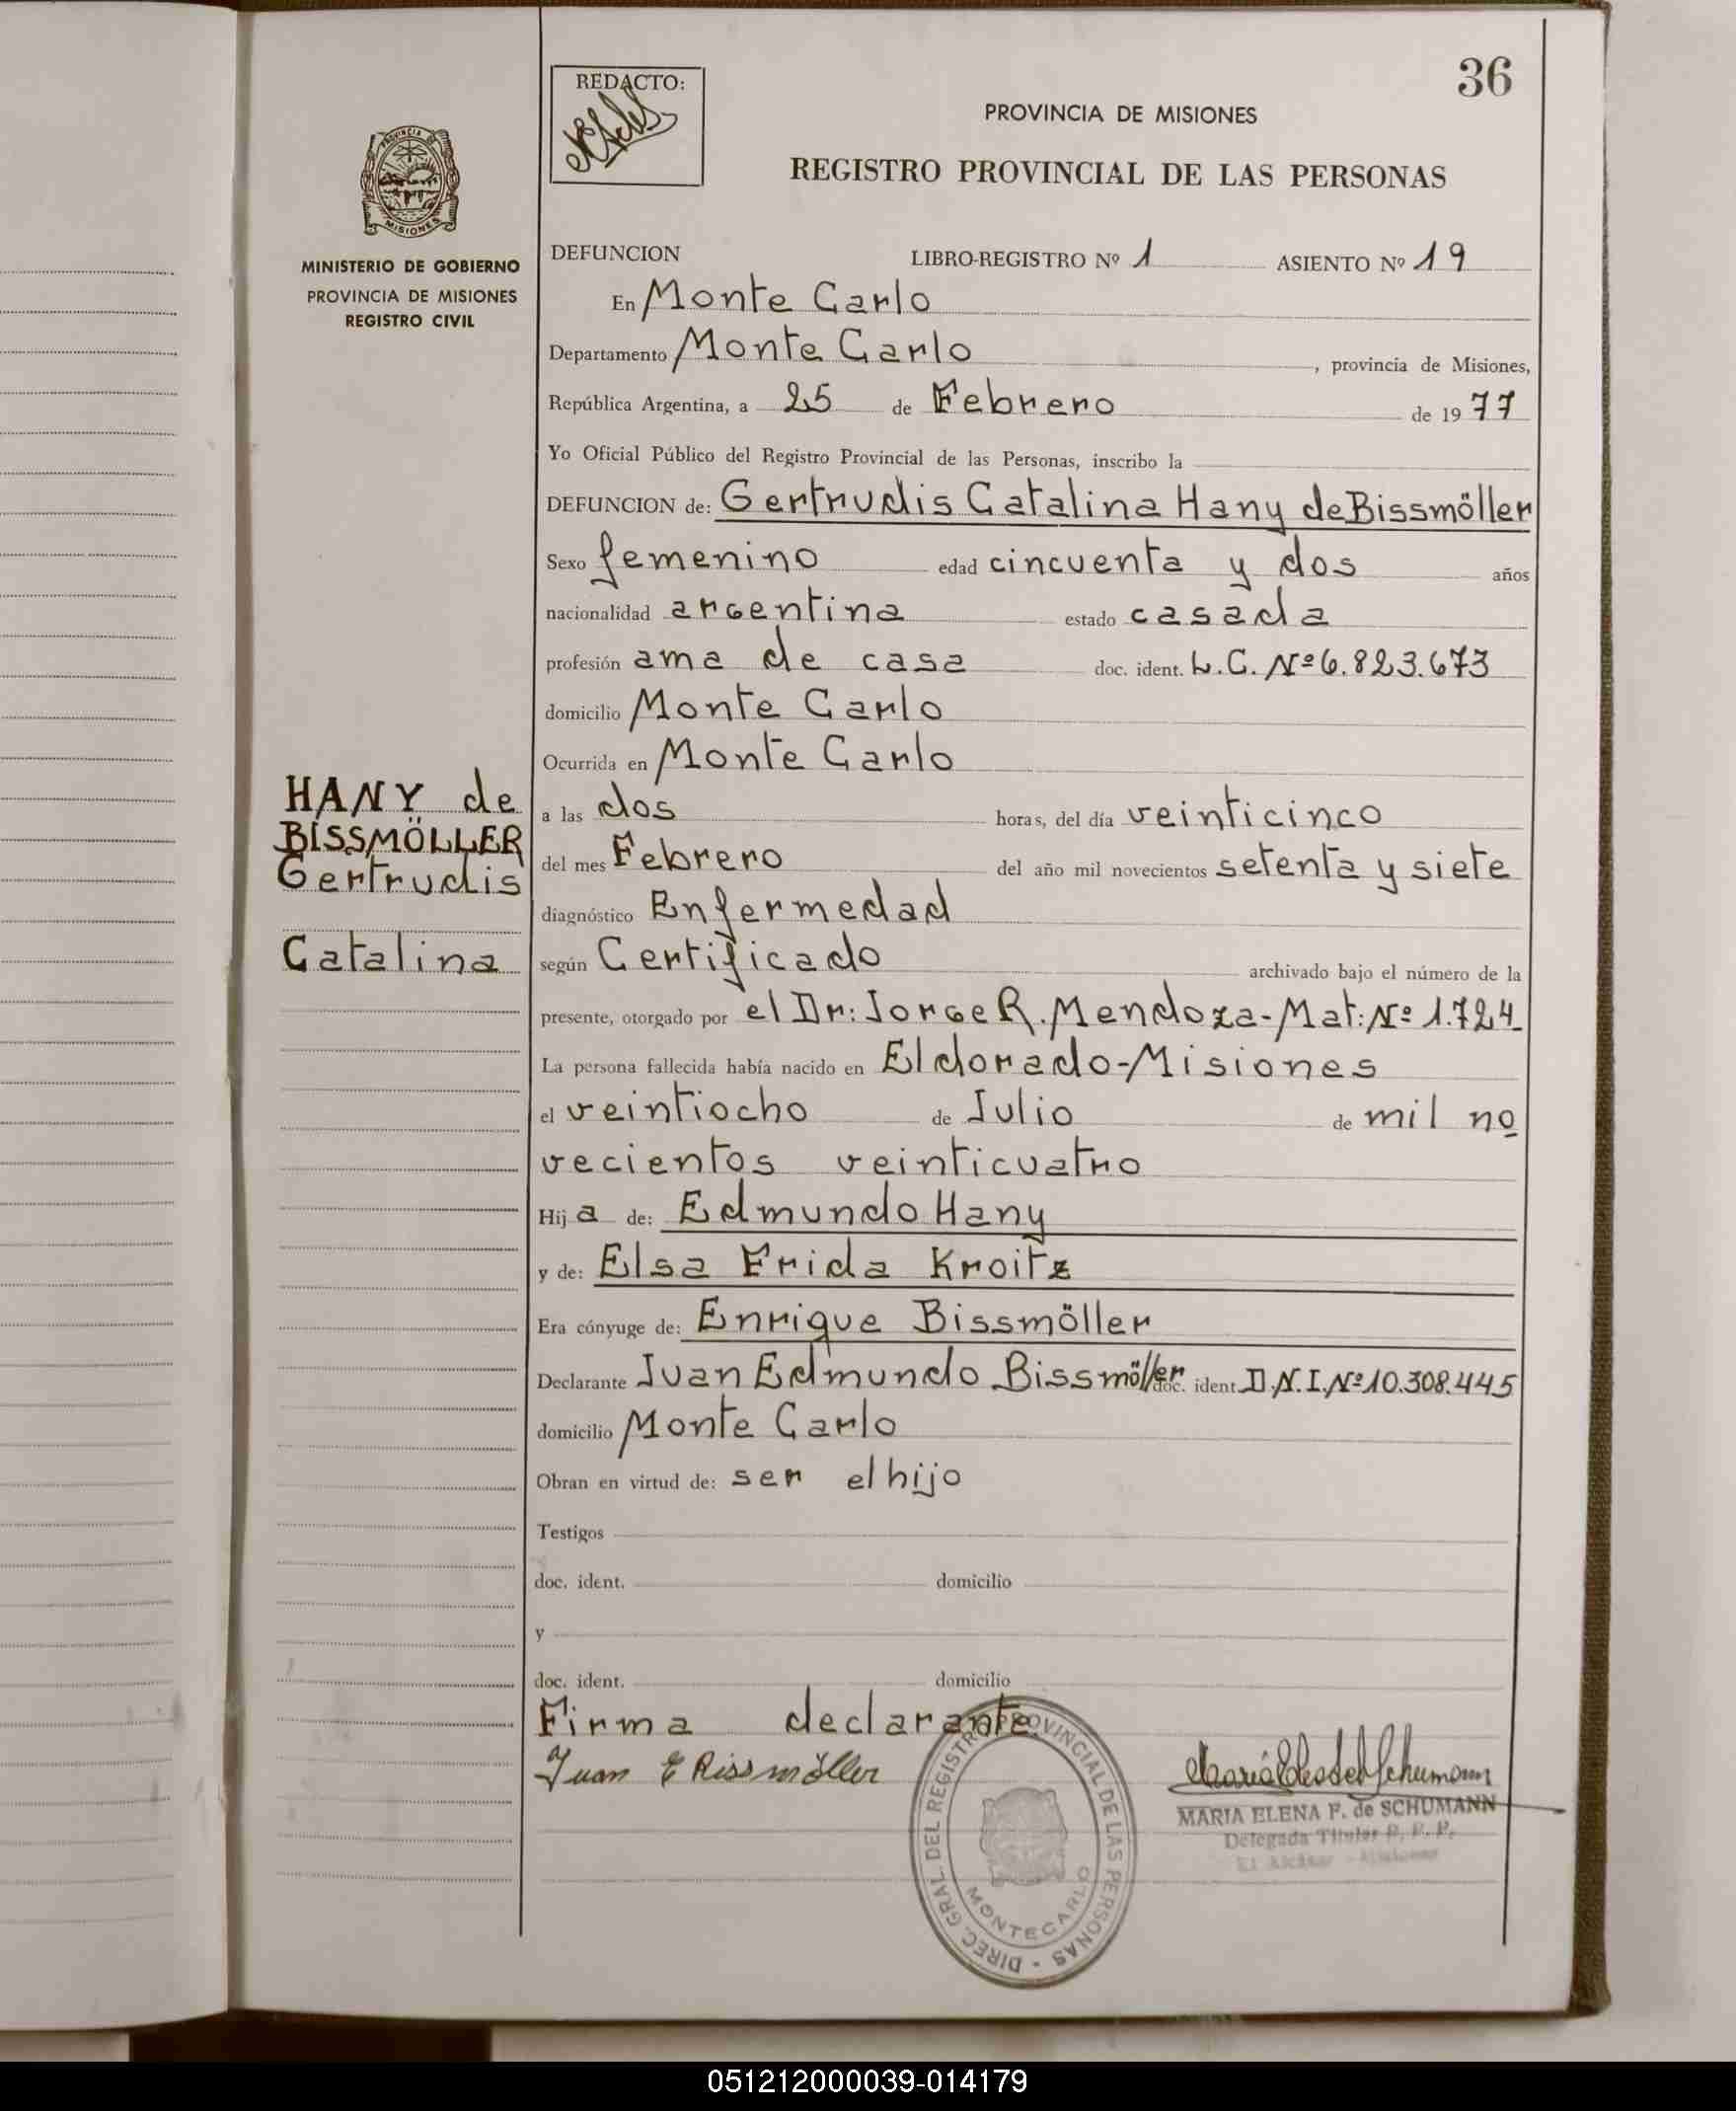 36
REDACTO:
PROVINCIA DE MISIONES
REGISTRO PROVINCIAL DE LAS PERSONAS
PROVINCIA DE
MISIONES
MINISTERIO DE GOBIERNO
PROVINCIA DE MISIONES
REGISTRO CIVIL
HANY de
BISSMÖLLER
Gertrudis
Catalina
DEFUNCION LIBRO-REGISTRO Nº 1 ASIENTO Nº 19
En Monte Carlo
Departamento Monte Carlo, provincia de Misiones,
República Argentina, a 25 de Febrero de 1977
Yo Oficial Público del Registro Provincial de las Personas, inscribo la
DEFUNCION de: Gertrudis Catalina Hany de Bissmöller
Sexo femenino edad cincuenta y dos años
nacionalidad argentina estado casada
profesión ama de casa doc. ident. L.C. Nº 6.823.673
domicilio Monte Carlo
Ocurrida en Monte Carlo
a las dos horas, del día veinticinco
del mes Febrero del año mil novecientos setenta y siete
diagnóstico Enfermedad
según Certificado archivado bajo el número de la
presente, otorgado por el Dr: Jorge R. Mendoza - Mat: Nº 1.724
La persona fallecida había nacido en Eldorado-Misiones
el veintiocho de Julio de mil no
vecientos veinticuatro
Hija de: Edmundo Hany
y de: Elsa Frida Kroitz
Era cónyuge de: Enrique Bissmöller
Declarante Juan Edmundo Bissmöller doc. ident. D.N.I. Nº 10.308.445
domicilio Monte Carlo
Obran en virtud de: ser el hijo
Testigos
doc. ident. domicilio
y
doc. ident. domicilio
Firma declarante
Juan E Bissmöller
DIREC. GRAL. DEL REGISTRO PROVINCIAL DE LAS PERSONAS -
MONTECARLO
MARIA ELENA F. de SCHUMANN
Delegada Titular R. P. P.
051212000039-014179